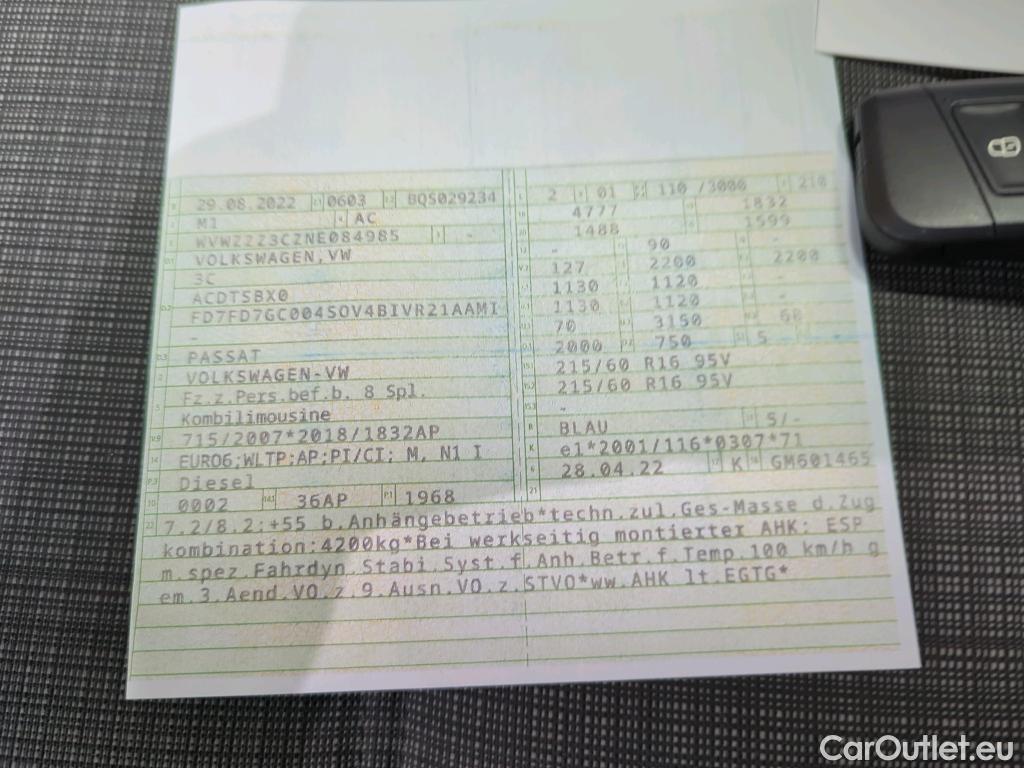 29.08.2022 0603 BQS029234
M1 AC
WVWZZZ3CZNE084985 -
VOLKSWAGEN,VW
3C
ACDTSBX0
FD7FD7GC004SOV4BIVR21AAMI
-
PASSAT
VOLKSWAGEN-VW
Fz.z.Pers.bef.b. 8 Spl.
Kombilimousine
715/2007*2018/1832AP
EURO6;WLTP;AP;PI/CI; M, N1 I
Diesel
0002 36AP 1968
2 01 110 /3000 210
4777 1832
1488 1599
- 90 -
127 2200 2200
1130 1120 -
1130 1120 -
70 3150 68
2000 750 5
215/60 R16 95V
215/60 R16 95V
-
BLAU 5/-
e1*2001/116*0307*71
28.04.22 K GM601465
7.2/8.2:+55 b.Anhängebetrieb*techn.zul.Ges-Masse d.Zug
kombination:4200kg*Bei werkseitig montierter AHK: ESP
m.spez.Fahrdyn.Stabi.Syst.f.Anh.Betr.f.Temp.100 km/h g
em.3.Aend.VO.z.9.Ausn.VO.z.STVO*ww.AHK lt.EGTG*
CarOutlet.eu